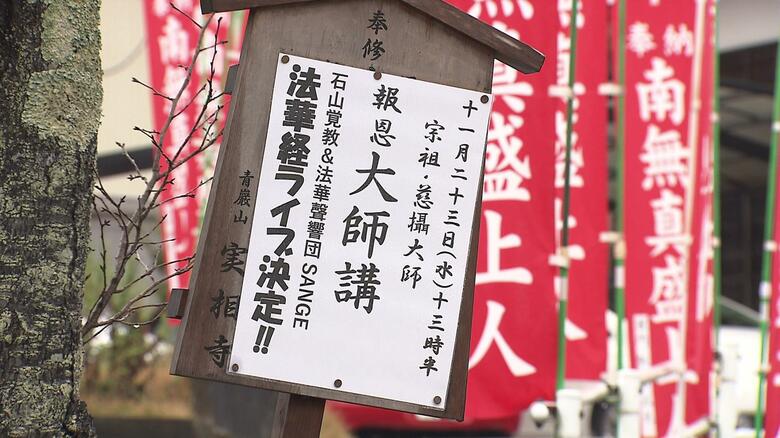 奉修
十一月二十三日(水)十三時半
宗祖・慈攝大師
報恩大師講
石山覚教&法華聲響団 SANGE
法華経ライブ決定!!
青巖山 実相寺
奉納 南無真盛上人
無真盛上人
南無